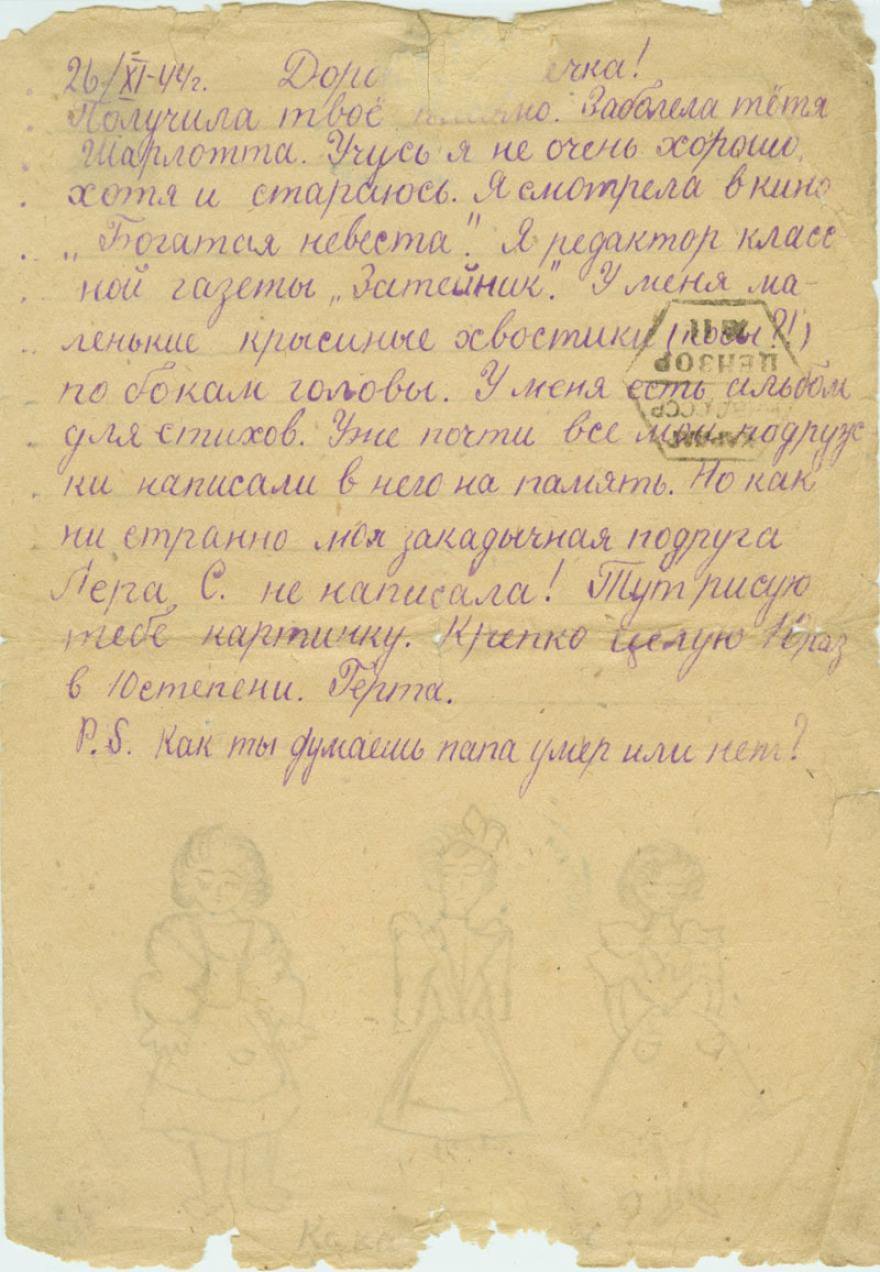 26/XI-44г. Доро ечка!
Получила твоё письмо. Заболела тётя
Шарлотта. Учусь я не очень хорошо,
хотя и стараюсь. Я смотрела в кино
„Богатая невеста". Я редактор класс-
ной газеты „Затейник". У меня ма-
ленькие крысиные хвостики (косы?!)
по бокам головы. У меня есть альбом
для стихов. Уже почти все мои подруж-
ки написали в него на память. Но как
ни странно моя закадычная подруга
Лера С. не написала! Тут рисую
тебе картинку. Крепко целую 10 раз
в 10 степени. Герта.
P.S. Как ты думаешь папа умер или нет?
ЦЕНЗОР